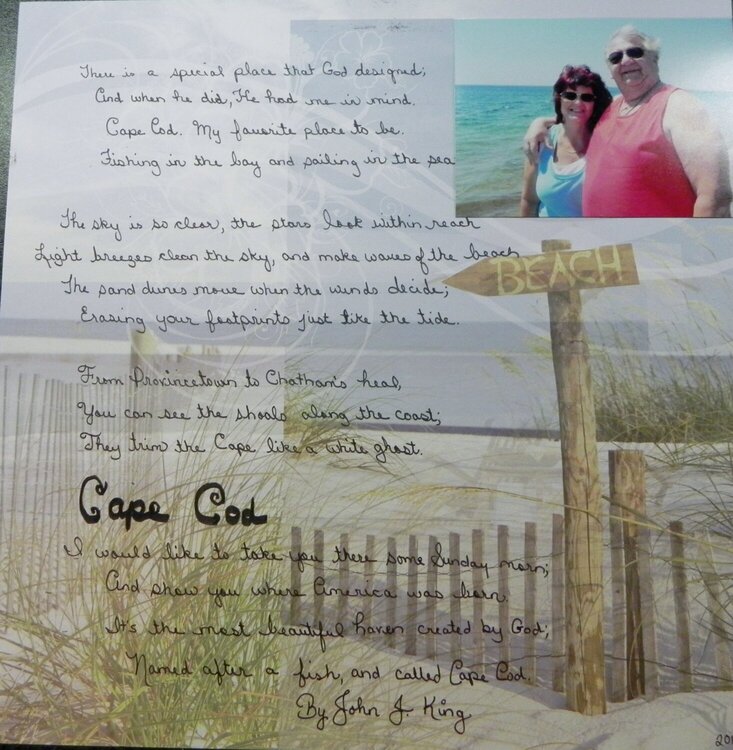 There is a special place that God designed;
And when he did, He had me in mind.
Cape Cod. My favorite place to be.
Fishing in the bay and sailing in the sea
The sky is so clear, the stars look within reach
Light breezes clean the sky, and make waves of the beach
The sand dunes move when the winds decide;
Erasing your footprints just like the tide.
BEACH
From Provincetown to Chatham's heal,
You can see the shoals along the coast;
They trim the Cape like a white ghost.
Cape Cod
I would like to take you there some Sunday morn;
And show you where America was born.
It's the most beautiful haven created by God;
Named after a fish, and called Cape Cod.
By John J. King